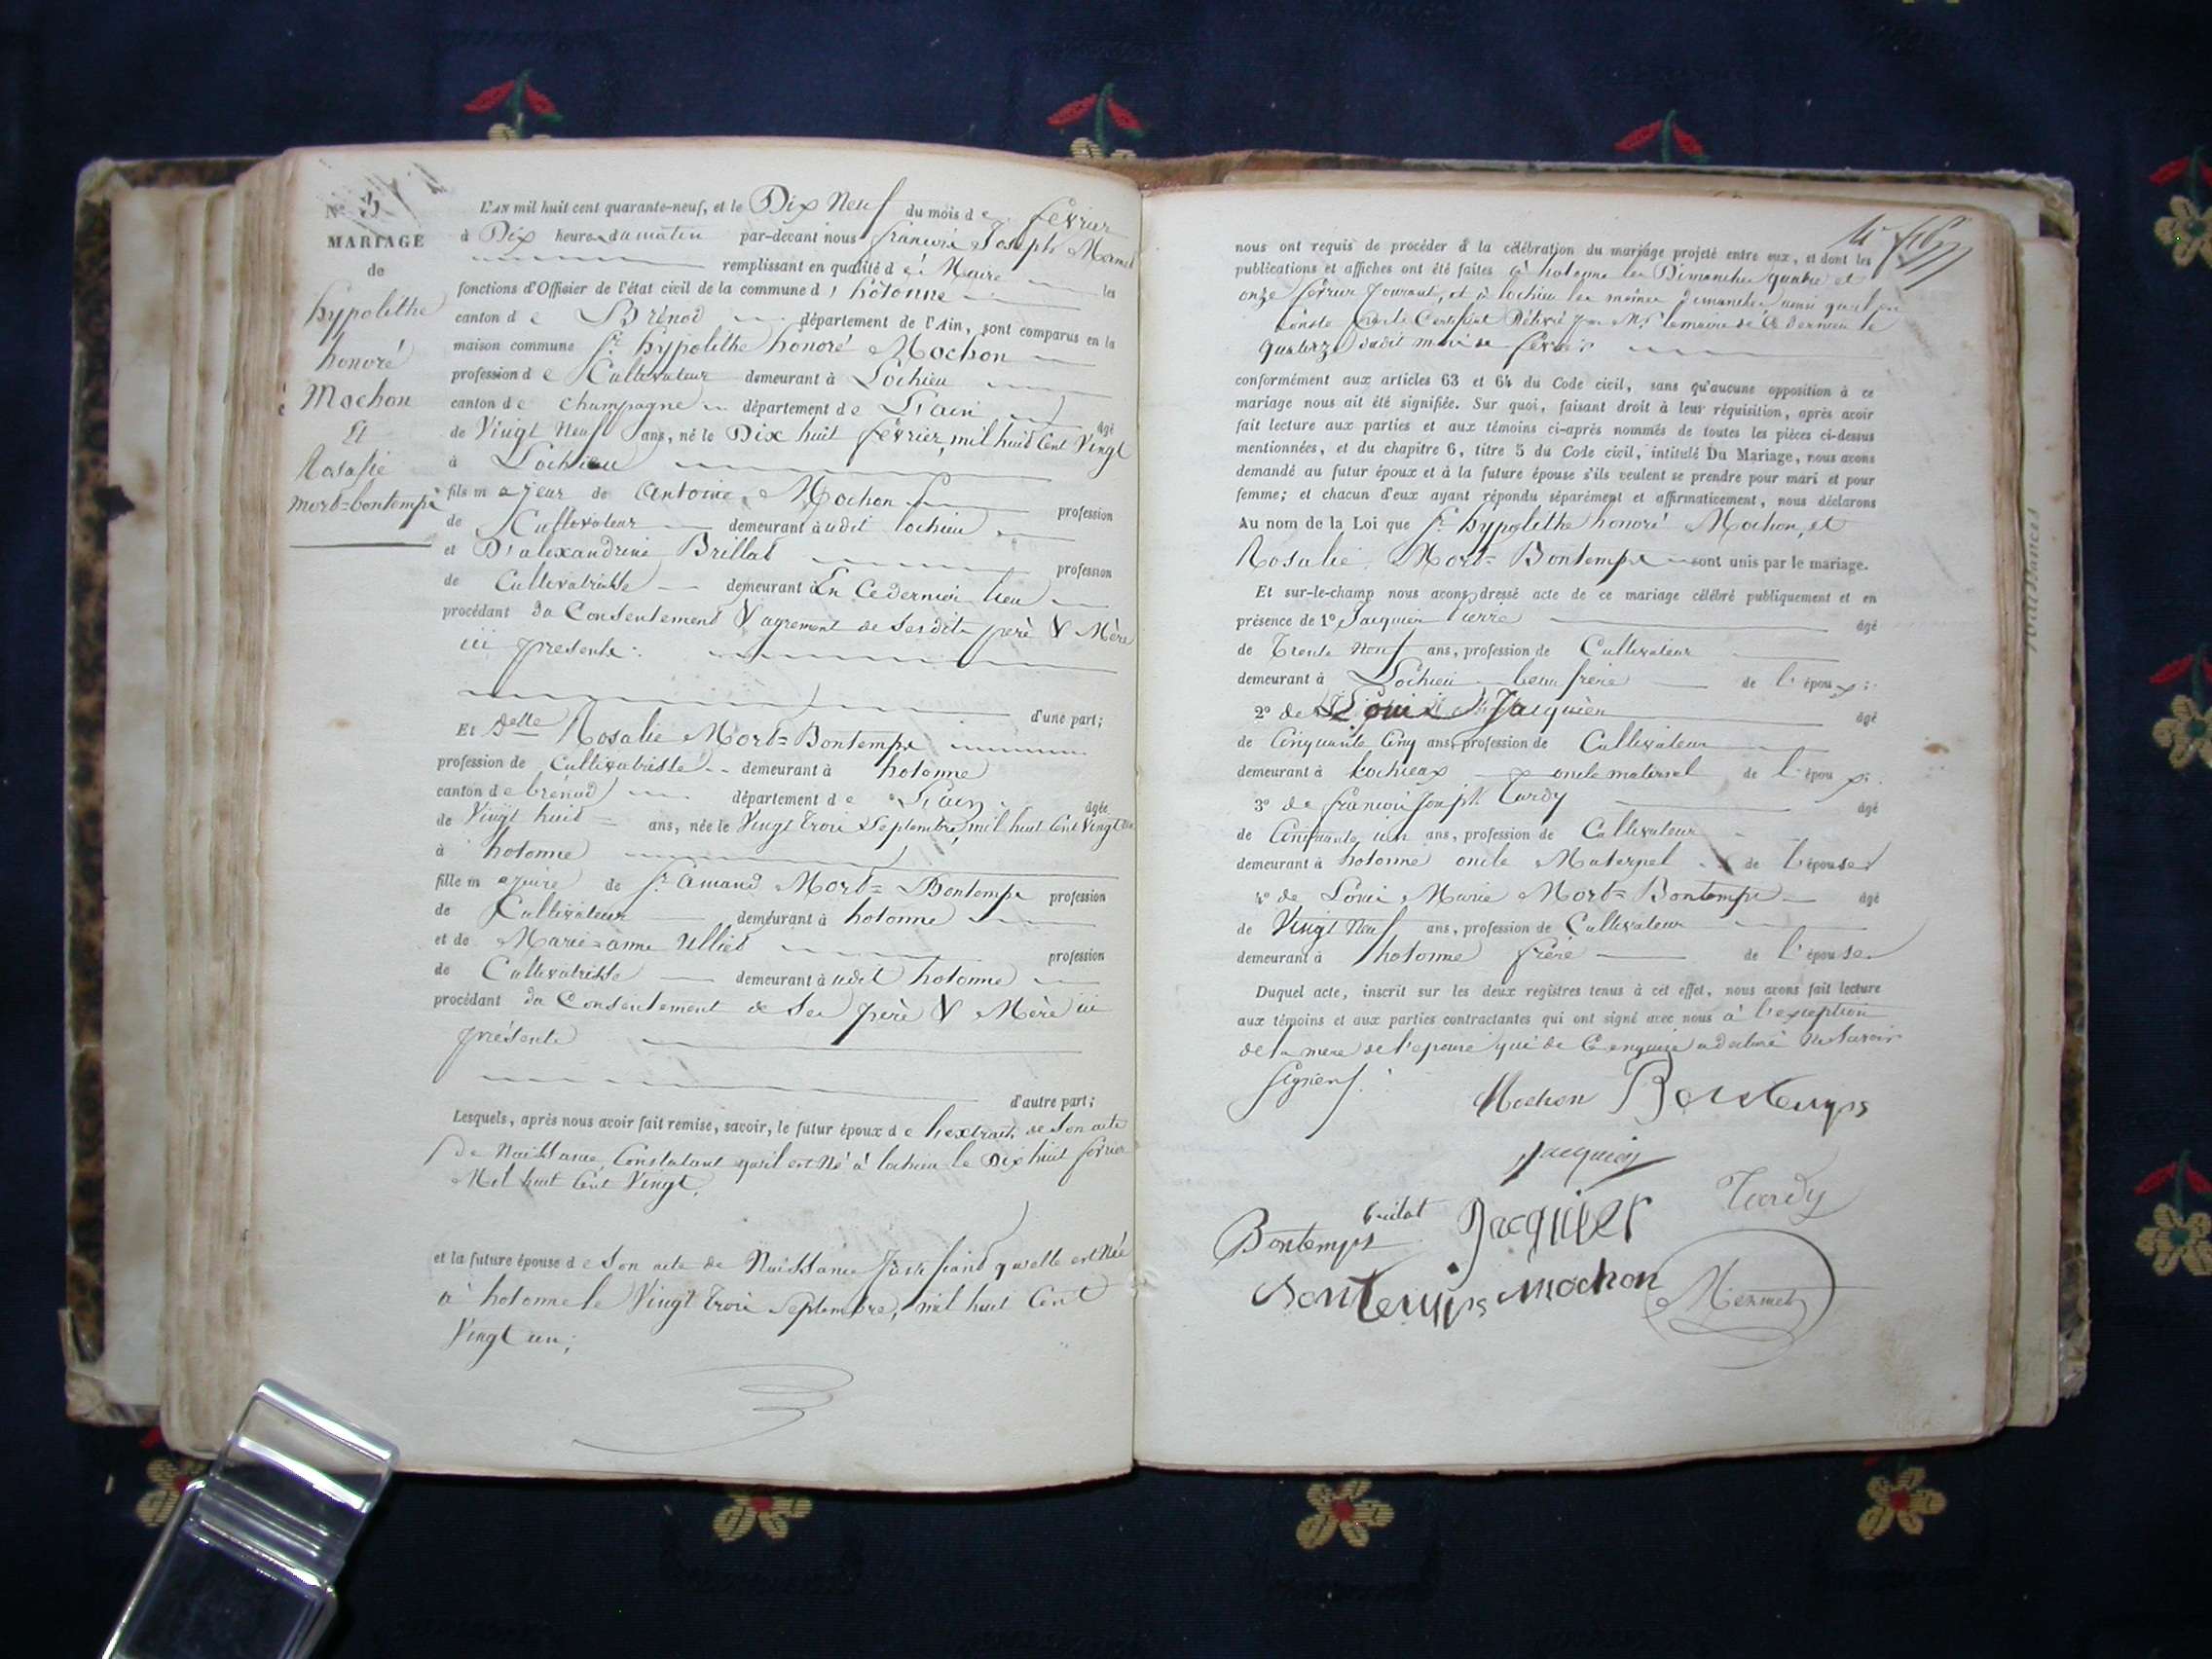 N° 3
MARIAGE
de
hypolithe
honoré
Mochon
Et
Rosalie
mort=bontemps
L'AN mil huit cent quarante-neuf, et le Dix Neuf du mois de février
à Dix heures du matin par-devant nous françois Joseph Mermet
remplissant en qualité de Maire les
fonctions d'Officier de l'état civil de la commune d'hotonne
canton de Brénod département de l'Ain, sont comparus en la
maison commune Sr. hypolithe honoré Mochon
profession de Cultivateur demeurant à Lochieu
canton de champagne département de L'ain âgé
de Vingt Neuf ans, né le Dix huit février, mil huit Cent Vingt
à Lochieu
fils majeur de Antoine Mochon profession
de Cultivateur demeurant àudit lochieu
et De alexandrine Brillat profession
de Cultivatrisse demeurant à En Cedernier lieu
procédant du Consentement & agrement de Sesdits père & Mère
ici présents.
d'une part;
Et Delle Rosalie Mort=Bontemps
profession de Cultivatrisse demeurant à hotonne
canton de brénod département de L'ain âgée
de Vingt huit ans, née le Vingt trois Septembre, mil huit Cent Vingt un
à hotonne
fille majeure de Sr. Amand Mort=Bontemps profession
de Cultivateur demeurant à hotonne
et de Marie=anne Ulliet profession
de Cultivatrisse demeurant àudit hotonne
procédant du Consentement de Ses père & Mère ici
présents
d'autre part;
Lesquels, après nous avoir fait remise, savoir, le futur époux de l'extrait de Son acte
de Naissance, Constatant qu'il est Né à lochieu le Dix huit février
Mil huit Cent Vingt,
et la future épouse de Son acte de Naissance Justifiant qu'elle est Née
à hotonne le Vingt trois Septembre, mil huit Cent
Vingt un;
nous ont requis de procéder à la célébration du mariage projeté entre eux, et dont les
publications et affiches ont été faites à hotonne les Dimanches quatre et
onze février Courant, et à lochieu les mêmes dimanches ainsi qu'il en
Conste par le Certificat Délivré par Mr. lemaire de Ce dernier le
quatorze dudit mois de février
conformément aux articles 63 et 64 du Code civil, sans qu'aucune opposition à ce
mariage nous ait été signifiée. Sur quoi, faisant droit à leur réquisition, après avoir
fait lecture aux parties et aux témoins ci-après nommés de toutes les pièces ci-dessus
mentionnées, et du chapitre 6, titre 5 du Code civil, intitulé Du Mariage, nous avons
demandé au futur époux et à la future épouse s'ils veulent se prendre pour mari et pour
femme; et chacun d'eux ayant répondu séparément et affirmativement, nous déclarons
Au nom de la Loi que Sr. hypolithe honoré Mochon, et
Rosalie Mort=Bontemps sont unis par le mariage.
Et sur-le-champ nous avons dressé acte de ce mariage célébré publiquement et en
présence de 1° Jacquier Pierre âgé
de Trente Neuf ans, profession de Cultivateur
demeurant à Lochieu beau frère de l'époux
2° de Louis Jacquier âgé
de Cinquante Cinq ans, profession de Cultivateur
demeurant à Lochieux oncle maternel de l'époux
3° de françois Joseph Tardy âgé
de Cinquante un ans, profession de Cultivateur
demeurant à hotonne oncle Maternel de l'épouse
4° de Louis Marie Mort=Bontemps âgé
de Vingt Neuf ans, profession de Cultivateur
demeurant à hotonne frère de l'épouse
Duquel acte, inscrit sur les deux registres tenus à cet effet, nous avons fait lecture
aux témoins et aux parties contractantes qui ont signé avec nous à l'exception
de la mere de l'epouse qui de Ce enquise a declaré Ne Savoir
Signer.
Mochon Bontemps
Jacquier
Bontemps Brilat Jacquier Tardy
Bontemps mochon Mermet